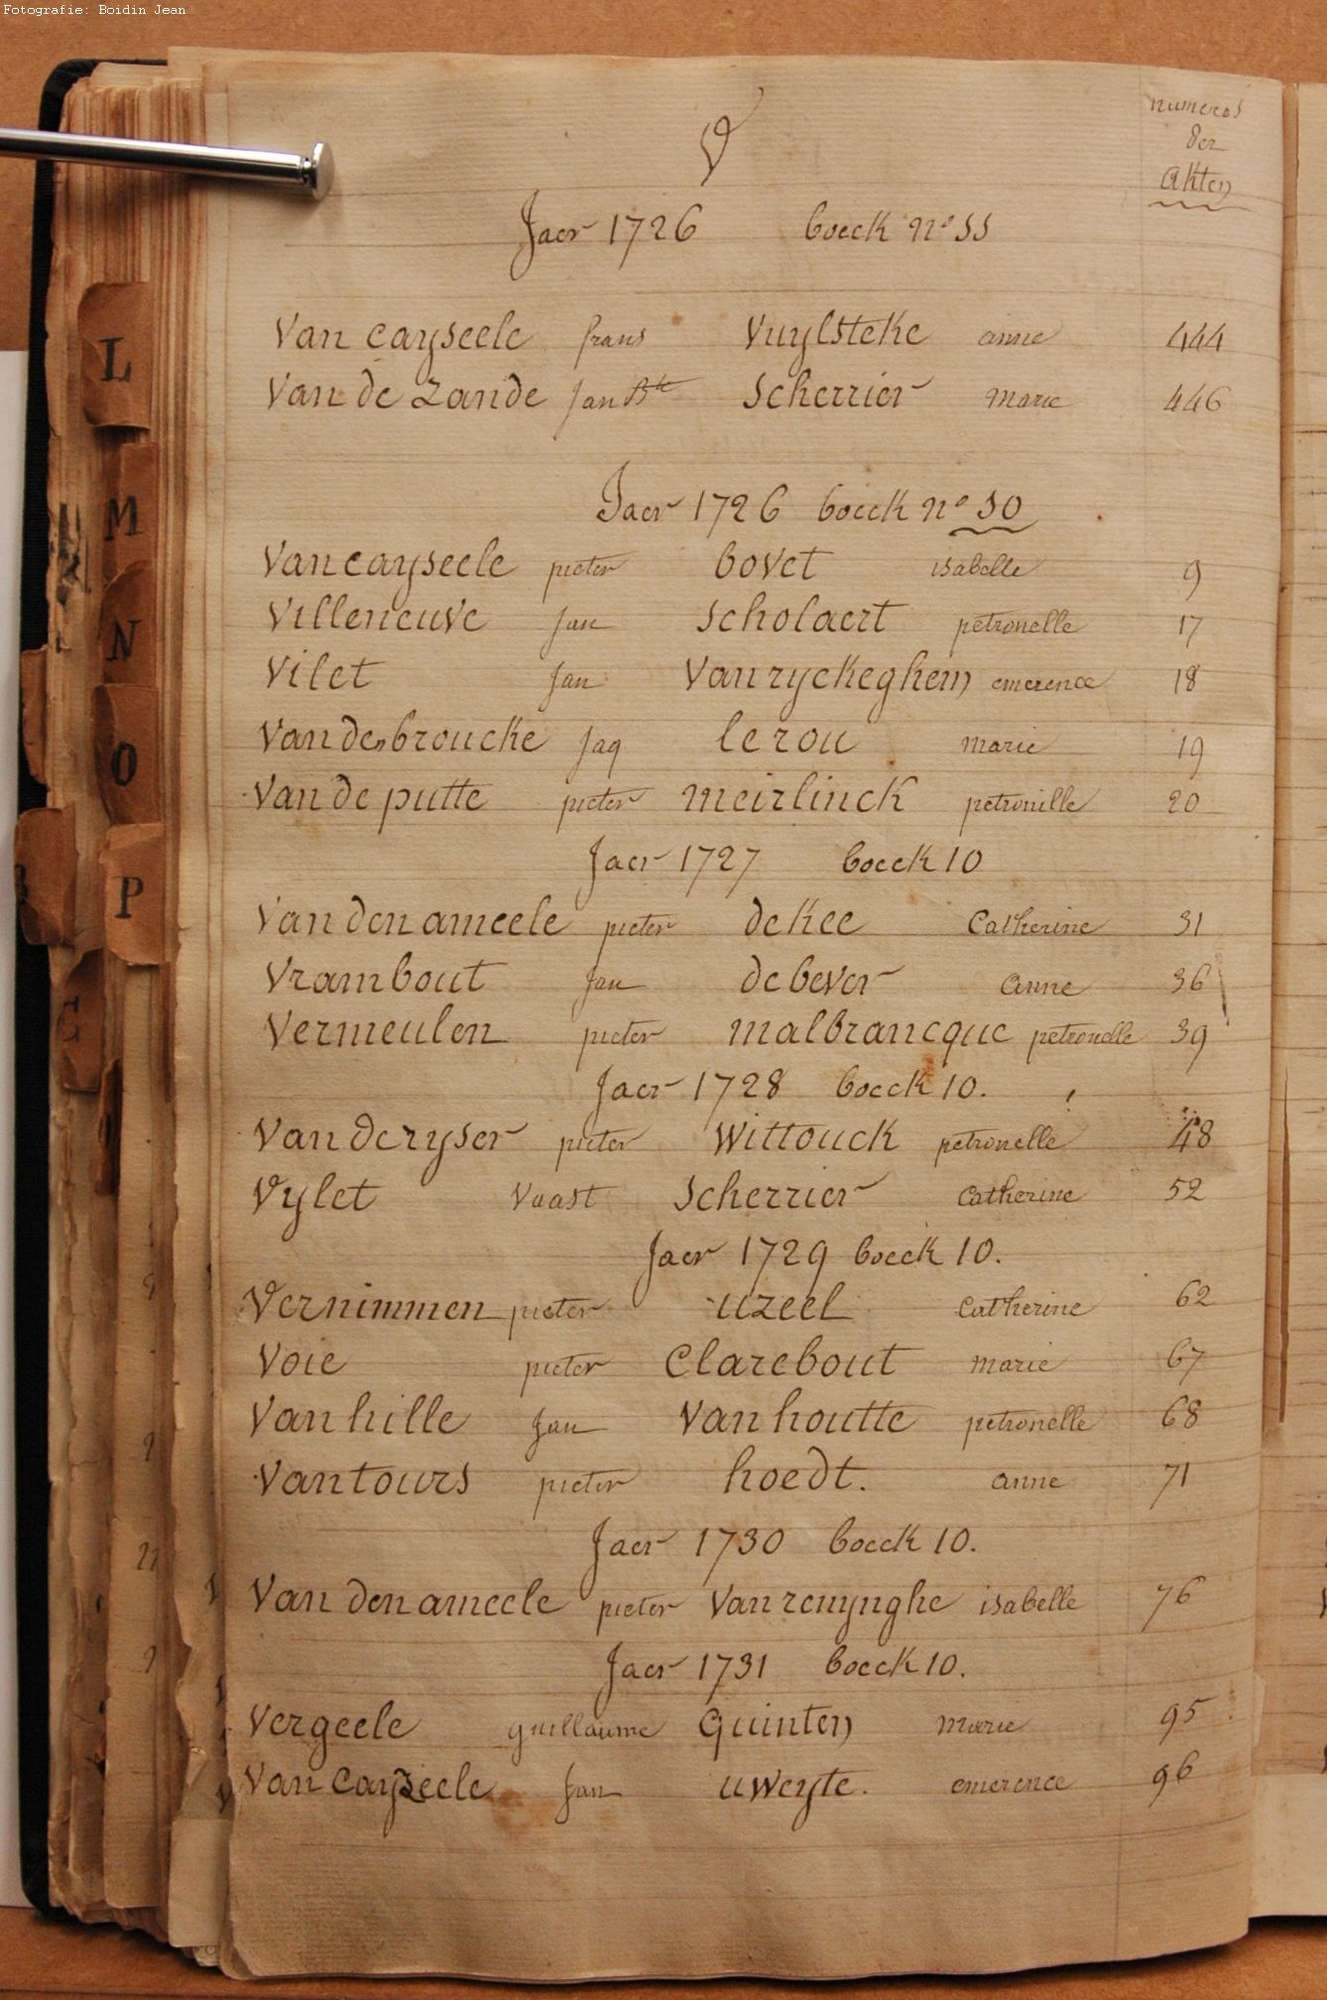 Fotografie: Boidin Jean
V
numeros
der
Akten
Jaer 1726 boeck n° 55
Van cayseele frans Vuylsteke anne 444
Van de Zande Jan Bte Scherrier marie 446
Jaer 1726 boeck n° 50
Van cayseele pieter bovet isabelle 9
Villeneuve Jan Scholaert petronelle 17
Vilet Jan Vanryckeghem emerence 18
Vandenbroucke Jaq lerou marie 19
Van de putte pieter meirlinck petronille 20
Jaer 1727 boeck 10
Van den ameele pieter dekee Catherine 31
Vrambout Jan debever anne 36
Vermeulen pieter malbrancque petronelle 39
Jaer 1728 boeck 10.
Van deryser pieter Wittouck petronelle 48
Vylet Vaast Scherrier Catherine 52
Jaer 1729 boeck 10.
Vernimmen pieter uzeel Catherine 62
Voie pieter Clarebout marie 67
Vanhille Jan Vanhoutte petronelle 68
Vantours pieter hoedt. anne 71
Jaer 1730 boeck 10.
Van den ameele pieter Van renynghe isabelle 76
Jaer 1731 boeck 10.
Vergeele guillaume Quinten marie 95
Van Cayzeele Jan uweyte. emerence 96
L
M
N
O
P